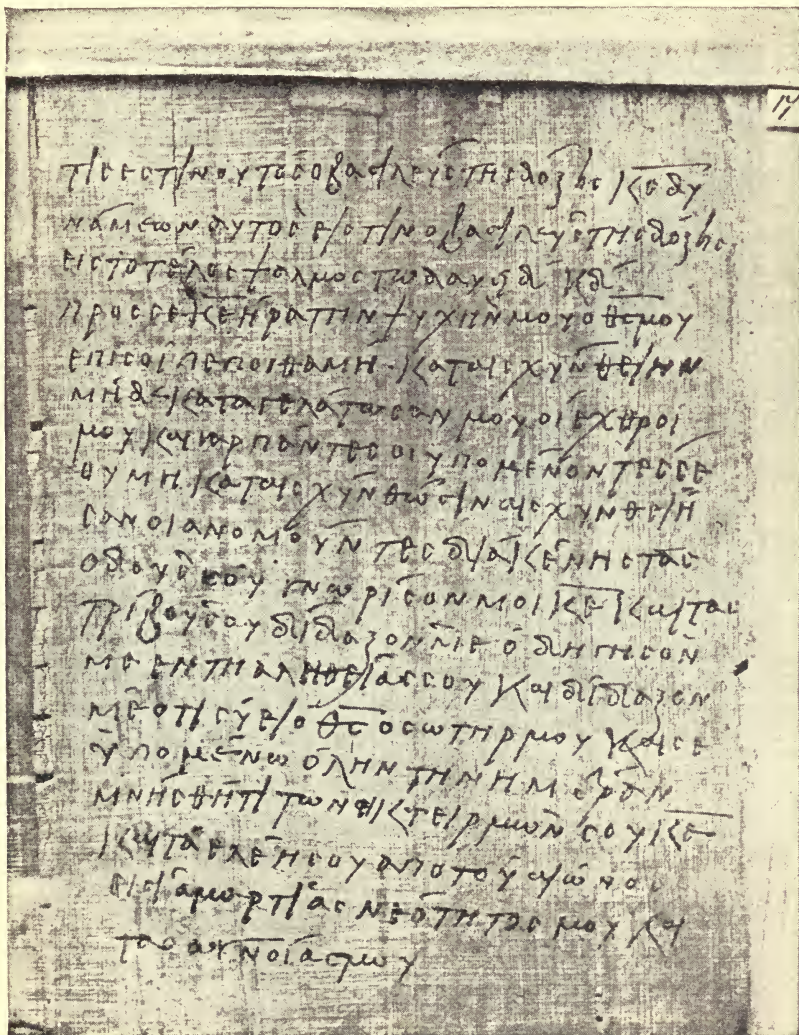 17
τις εστιν ουτος ο βασιλευς της δοξης κς δυ
ναμεων αυτος εστιν ο βασιλευς της δοξης
εις το τελος ψαλμος τω δαυιδ κδ
προς σε κε ηρα την ψυχην μου ο θς μου
επι σοι πεποιθα μη καταισχυνθειην
μηδε καταγελατωσαν μου οι εχθροι
μου και γαρ παντες οι υπομενοντες σε
ου μη καταισχυνθωσιν αισχυνθειη
σαν οι ανομουντες δια κενης τας
οδους σου γνωρισον μοι κε και τας
τριβους σου διδαξον με οδηγησον
με εν τη αληθειας σου και διδαξον
με οτι συ ει ο θς ο σωτηρ μου και σε
υπομενω ολην την ημεραν
μνησθητι των οικτειρμων σου κε
και τα ελεη σου απο του αιωνος
αμαρτιας νεοτητος μου και
αγνοιας μου